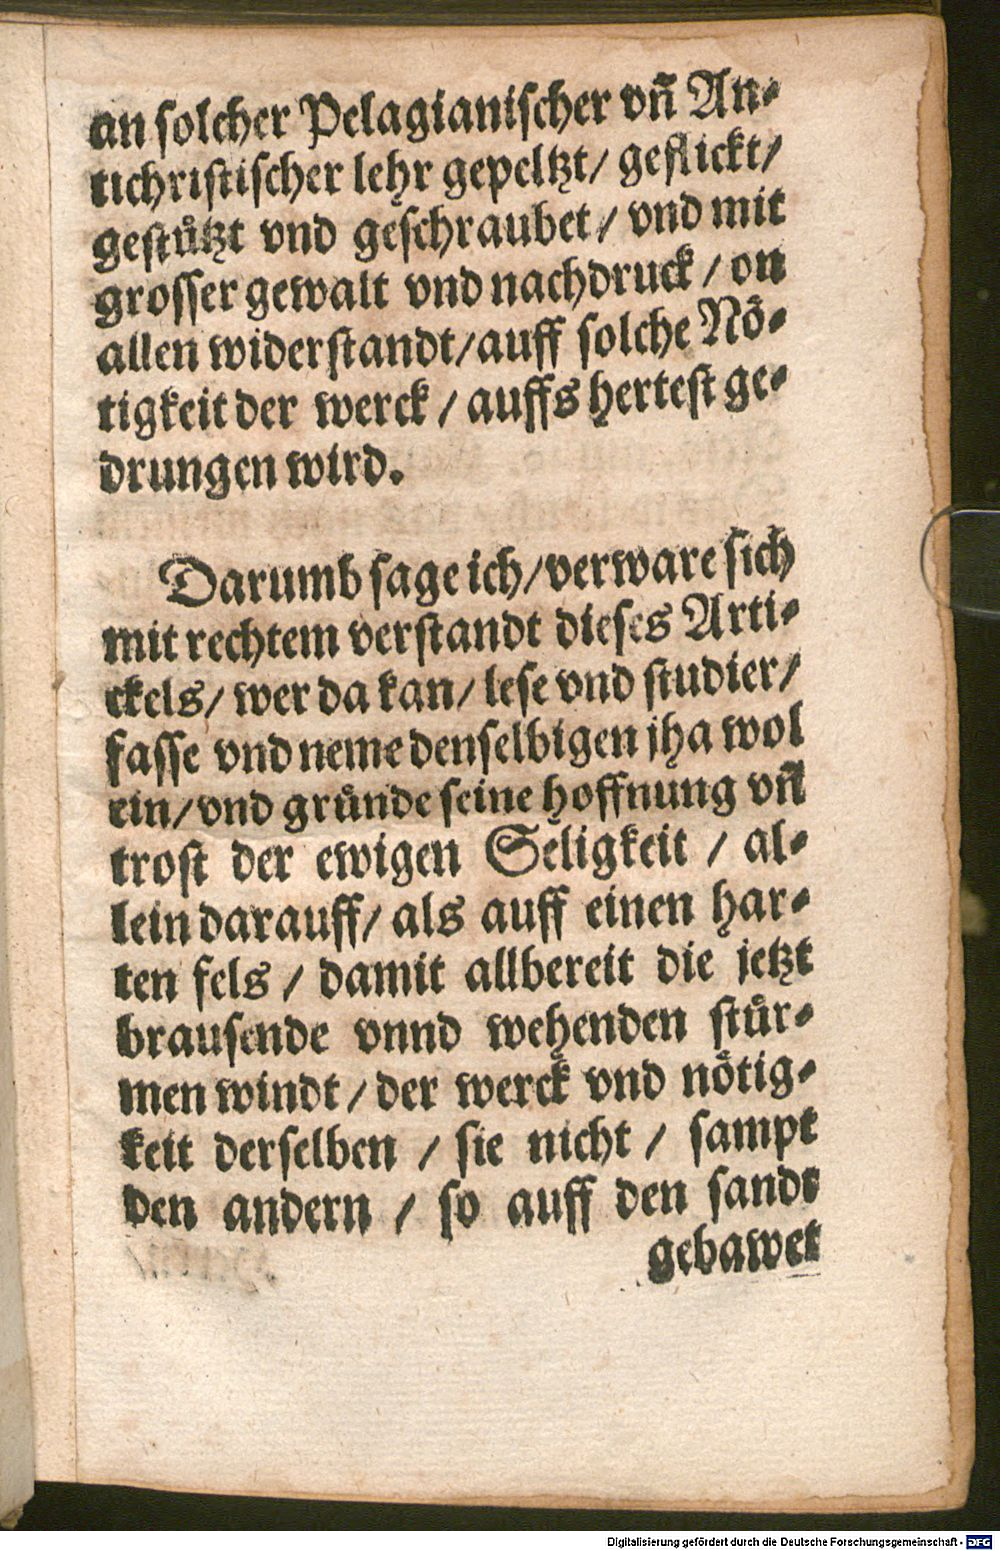 an solcher Pelagianischer vñ An⸗
tichristischer lehr gepeltzt/ geflickt/
gestuͤtzt vnd geschraubet/ vnd mit
grosser gewalt vnd nachdruck / on
allen widerstandt/auff solche Noͤ⸗
tigkeit der werck / auffs hertest ge⸗
drungen wird.
Darumb sage ich/verware sich
mit rechtem verstandt dieses Arti⸗
ckels/ wer da kan/ lese vnd studier/
fasse vnd neme denselbigen jha wol
ein/vnd gruͤnde seine hoffnung vñ
trost der ewigen Seligkeit / al⸗
lein darauff/ als auff einen har⸗
ten fels / damit allbereit die jetzt
brausende vnnd wehenden stuͤr⸗
men windt / der werck vnd noͤtig⸗
keit derselben / sie nicht / sampt
den andern / so auff den sandt
gebawet
Digitalisierung gefördert durch die Deutsche Forschungsgemeinschaft - DFG